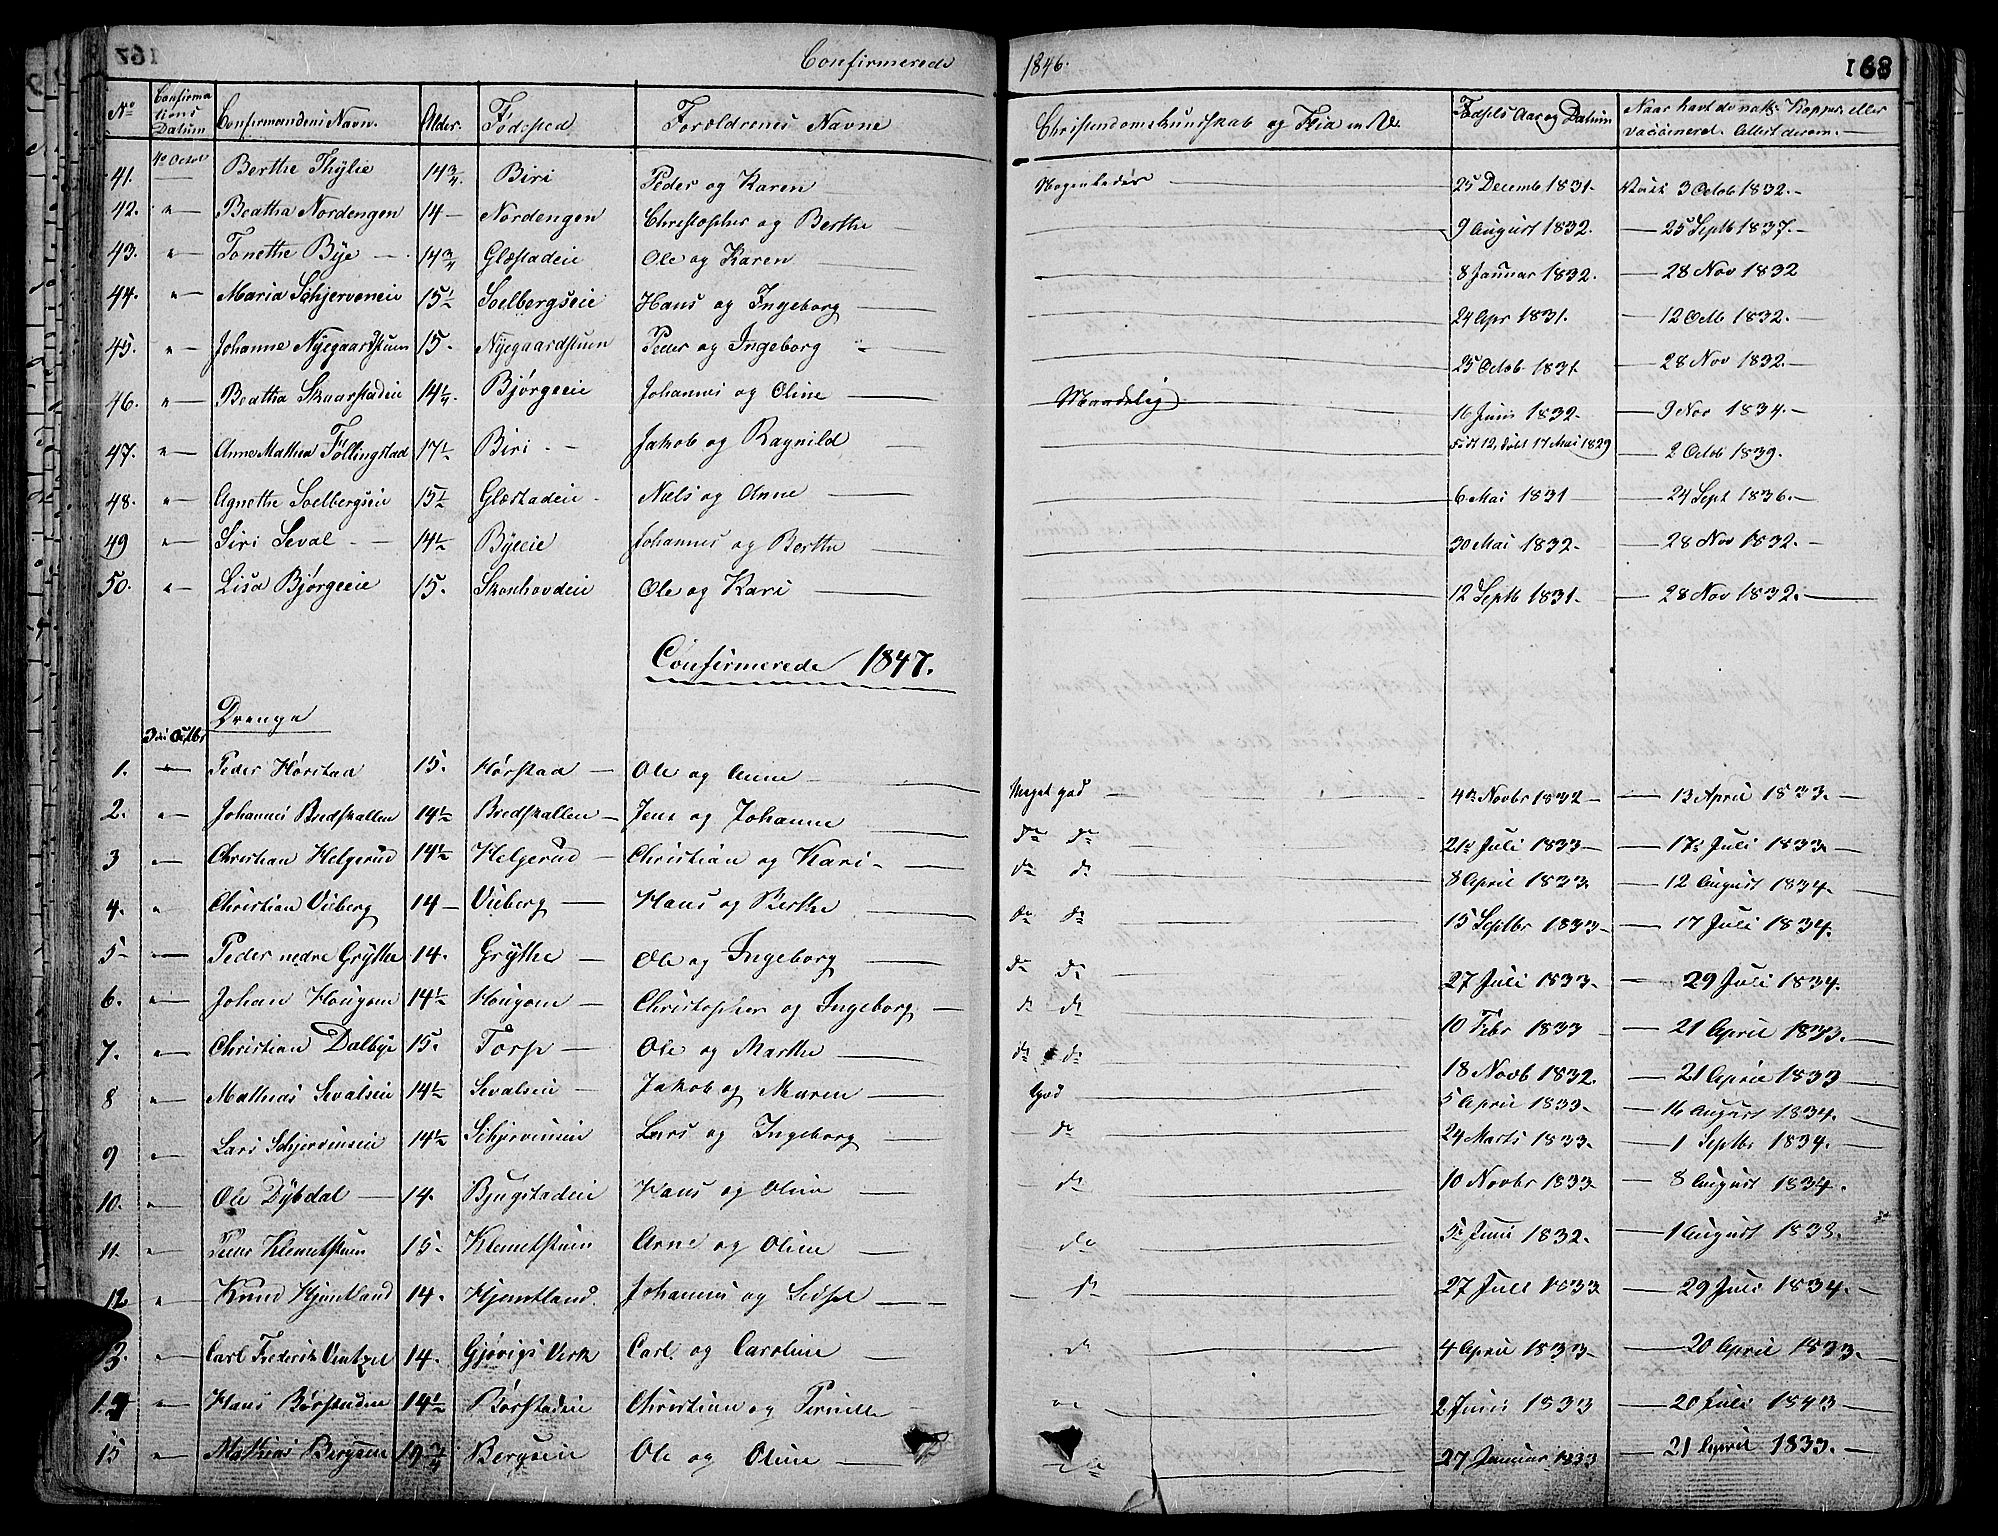 Confirmerede 1846. 168
No Confirmations Datum Confirmandens Navn. Alder. Födested Forældrenes Navne Christendomskundskab og Flid Födsels Aar og Datum Naar havt de natl. Kopper eller vaccineret. Attest derom.
41. 4de Octob Berthe Thylie 14 3/4. Biri Peder og Karen — Nogenledes 25 Decemb 1831. Vacc 3 Octob 1832. —
42. " — Beatha Nordengen 14 — Nordengen Christopher og Berthe — 9 August 1832. — 25 Septb 1837. —
43. " — Tonethe Bye — 14 3/4 Glæstadeie Ole og Karen — 8 Januar 1832. — 28 Nov 1832
44. " — Maria Schjerveneie 15 1/2 Soelbergseie Hans og Ingeborg — 24 Apr 1831. — 12 Octb 1832. —
45. " — Johanne Nyegaardstuen 15. Nyegaardstuen Peder og Ingeborg — 25 Octob 1831 — 28 Nov 1832. —
46. " — Beatha Skaarstadeie 14 1/4. Bjørgeeie Johannes og Oline — Maadelig 16 Juni 1832. — 9 Nov 1834. —
47. " — Anne Mathea Føllingstad 17 1/2 Biri. — Jakob og Ragnild — Födt 12, döbt 17 Mai 1829 — 2 Octob 1839.
48. " — Agnethe Soelbergseie 15 1/2 Glæstadeie. Niels og Anne — 6 Mai 1831 — 24 Sept 1836. —
49 " — Siri Seval — 14 1/2 Byeeie Johannes og Berthe — 30 Mai 1832. — 28 Nov 1832. —
50. " — Lisa Bjørgeeie 15. Skonhovdeie Ole og Kari — 12 Septb 1831. — 28 Nov 1832. —
Confirmerede 1847.
Drenge
3die Octbr
1. Peder Hørstad 15. Hørstad — Ole og Anne — Meget god 4de Novbr 1832 — 13 April 1833. —
2. " — Johannes Bredskallen 14 1/2 Bredskallen — Jens og Johanne — do do 21 Juli 1833 — 17 Juli 1833.
3 " — Christian Helgerud 14 1/2 Helgerud — Christian og Kari — do do 8 April 1833. — 12 August 1834.
4. " Christian Vieberg 14 — Vieberg — Hans og Berthe — do do 15 Septbr 1833 — 17 Juli 1834.
5 — Peder nedre Grythe 14. Grythe — Ole og Ingeborg — do do 27 Juli 1833 — 29 Juli 1834.
6. " — Johan Hougom 14 1/2 Hougom — Christopher og Ingeborg — do do 10 Febr 1833 — 21 April 1833. —
7. " — Christian Dalbye 15. Torp — Ole og Marthe — do do 18 Novb 1832. — 21 April 1833
8 " — Mathias Sevalseie 14 1/2 Sevalseie — Jakob og Maren — God 5 April 1833. — 16 August 1834.
9 " — Lars Schjerveneie 14 1/2 Schjerveneie Lars og Ingeborg — do 24 Marts 1833. — 1 Septbr 1834. —
10. " — Ole Dybdal — 14. Bjugstadeie Hans og Oline — do 10 Novbr 1833 — 8 August 1834.
11. " — Peder Klemetstuen 15. Klemetstuen Arne og Oline — do 5 Juni 1832. — 1 August 1838.
12 " — Knud Hjemtland 14. Hjemtland. Johannes og Sidsel — do 27 Juli 1833 — 29 Juli 1834. —
13. " — Carl Frederik Ventzel 14. Gjøvigs Værk Carl og Caroline — do 4 April 1833 — 20 April 1833 —
14 " — Hans Børstadeie 14 1/2 Børstadeie Christian og Pernille do 2 Juni 1833 — 20 Juli 1843 —
15 " — Mathias Bergseie 14 3/4 Bergseie Ole og Oline — do 27 Januar 1833 — 21 April 1833. —